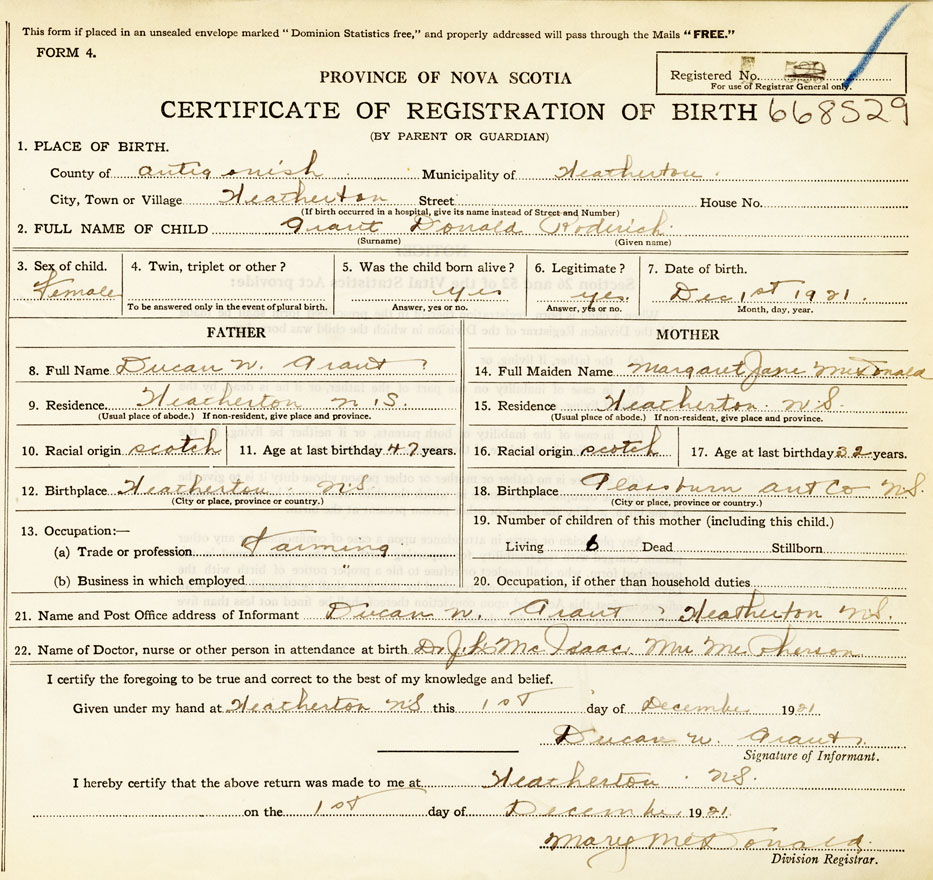 This form if placed in an unsealed envelope marked "Dominion Statistics free," and properly addressed will pass through the Mails "FREE."
FORM 4.
PROVINCE OF NOVA SCOTIA
Registered No.
For use of Registrar General only.
CERTIFICATE OF REGISTRATION OF BIRTH 668529
(BY PARENT OR GUARDIAN)
1. PLACE OF BIRTH.
County of Antigonish Municipality of Heatherton.
City, Town or Village Heatherton Street House No.
(If birth occurred in a hospital, give its name instead of Street and Number)
2. FULL NAME OF CHILD Grant Donald Roderich
(Surname) (Given name)
3. Sex of child. 4. Twin, triplet or other? 5. Was the child born alive? 6. Legitimate? 7. Date of birth.
Female yes yes. Dec 1st 1921.
To be answered only in the event of plural birth. Answer, yes or no. Answer, yes or no. Month, day, year.
FATHER MOTHER
8. Full Name Ducan W. Grant 14. Full Maiden Name Margaret Jane McDonald
9. Residence. Heatherton N.S. 15. Residence Heatherton. N.S.
(Usual place of abode.) If non-resident, give place and province. (Usual place of abode.) If non-resident, give place and province.
10. Racial origin scotch 11. Age at last birthday 47 years. 16. Racial origin scotch 17. Age at last birthday 32 years.
12. Birthplace Heatherton. N.S. 18. Birthplace Glassburn Ant Co N.S.
(City or place, province or country.) (City or place, province or country.)
13. Occupation:— 19. Number of children of this mother (including this child.)
(a) Trade or profession Farming Living 6 Dead Stillborn
(b) Business in which employed " 20. Occupation, if other than household duties
21. Name and Post Office address of Informant Ducan W. Grant Heatherton N.S.
22. Name of Doctor, nurse or other person in attendance at birth Dr J.L. McIsaac Mrs McPherson
I certify the foregoing to be true and correct to the best of my knowledge and belief.
Given under my hand at Heatherton NS this 1st day of December 1921
Ducan W. Grant.
Signature of Informant.
I hereby certify that the above return was made to me at Heatherton. N.S.
on the 1st day of December 1921.
Mary McDonald.
Division Registrar.